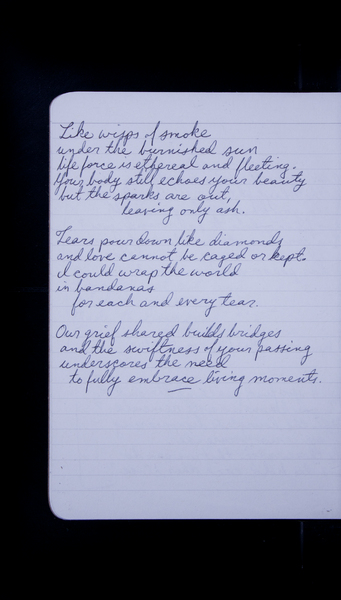 Like wisps of smoke
under the burnished sun
life force is ethereal and fleeting.
Your body still echoes your beauty
but the sparks are out,
leaving only ash.
Tears pour down like diamonds
and love cannot be caged or kept.
I could wrap the world
in bandanas
for each and every tear.
Our grief shared builds bridges
and the swiftness of your passing
underscores the need
to fully embrace living moments.